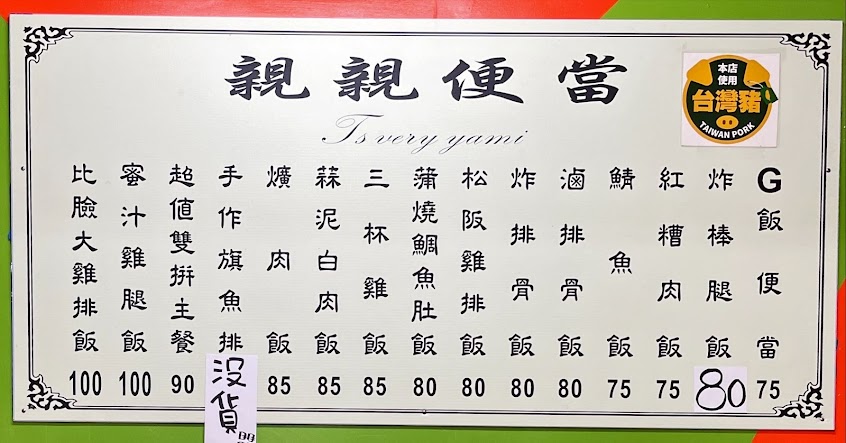 親親便當
Ts very yami
本店
使用
台灣豬
TAIWAN PORK
G飯便當 75
炸棒腿飯 80
紅糟肉飯 75
鯖魚飯 75
滷排骨飯 80
炸排骨飯 80
松阪雞排飯 80
蒲燒鯛魚肚飯 80
三杯雞飯 85
蒜泥白肉飯 85
爌肉飯 85
手作旗魚排 沒貨
超值雙拼主餐 90
蜜汁雞腿飯 100
比臉大雞排飯 100